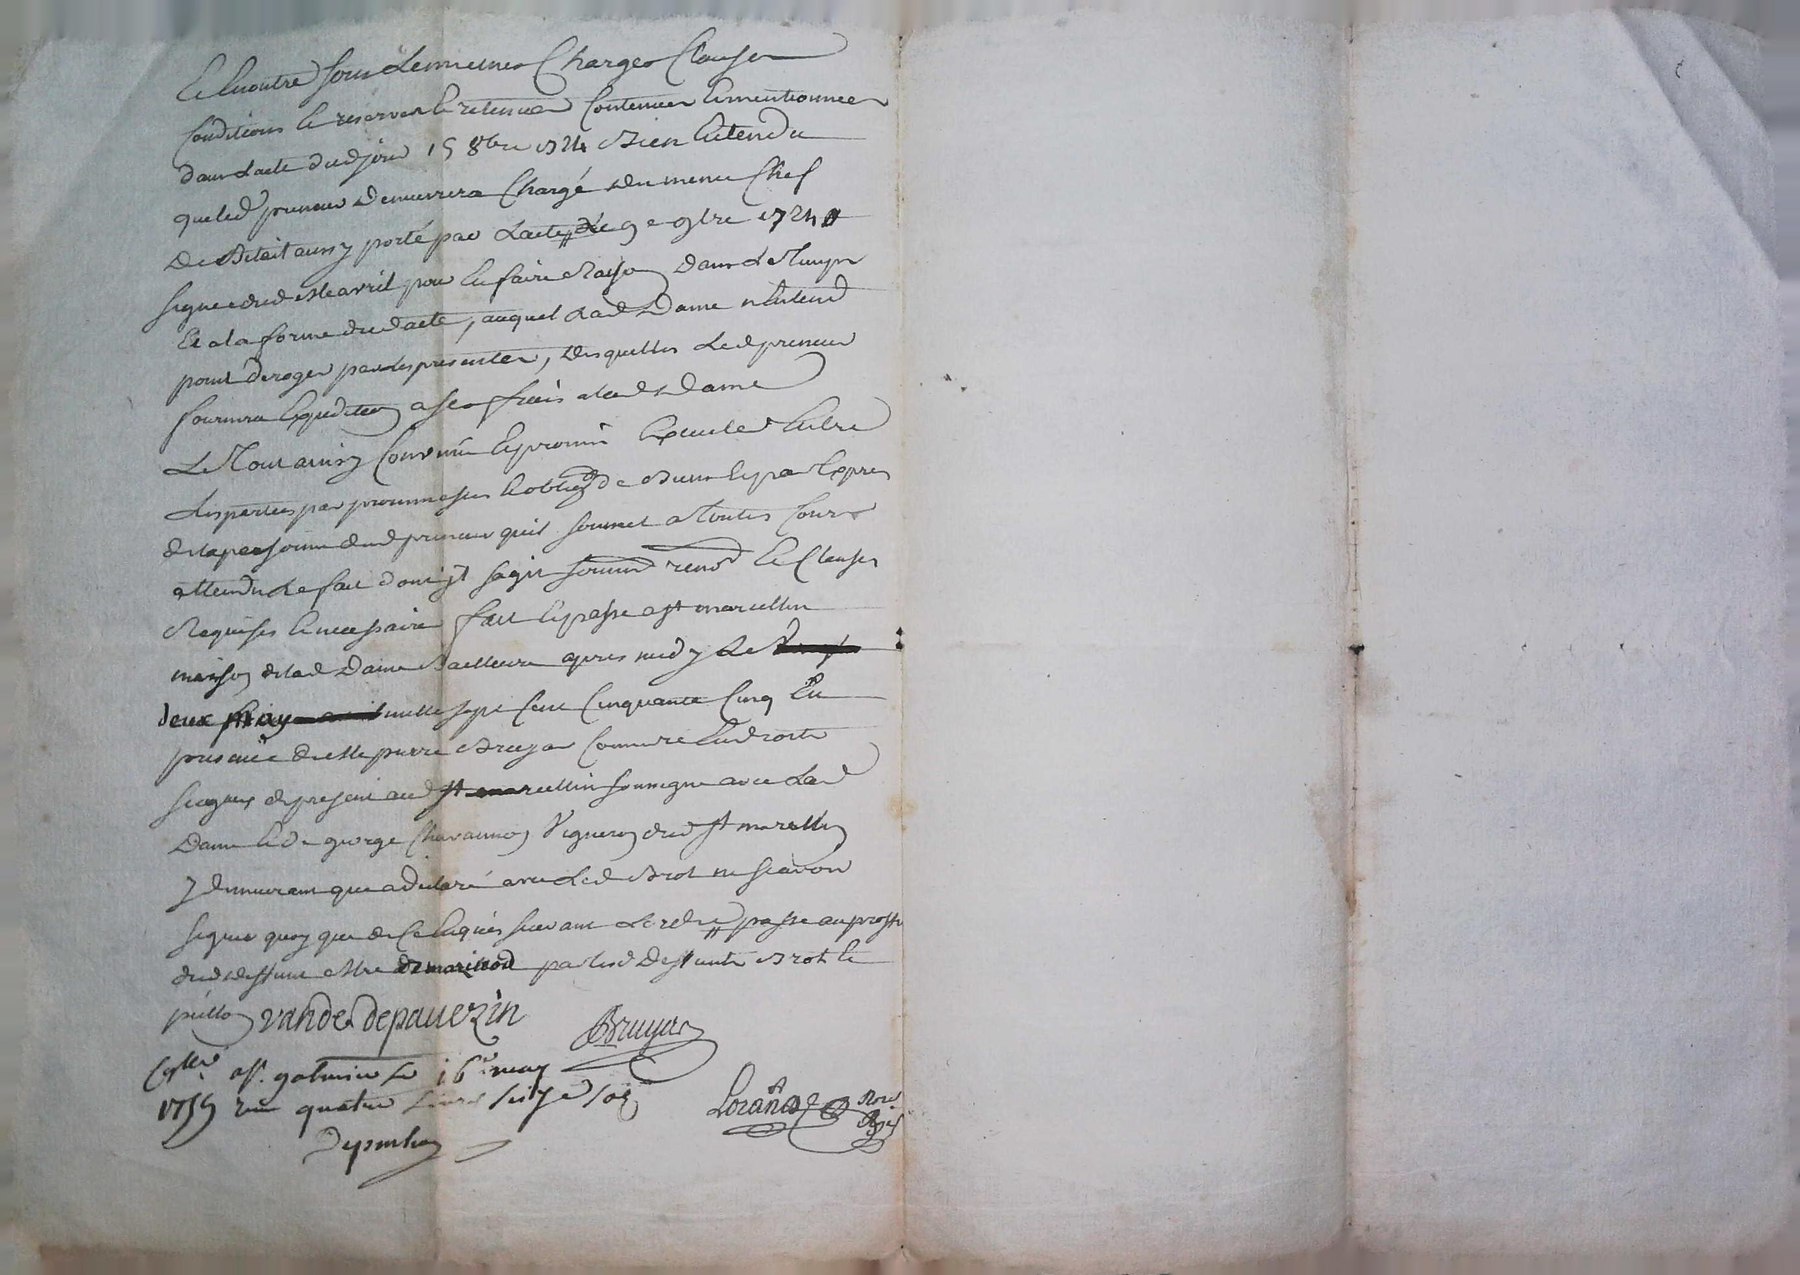 Et enoutre sous lesmemes Charges Clauses
Conditions et reserves et retenues Contenues et mentionnees
dans lacte dud jour 15 8bre 1724 Bien Entendu
queled preneur demeurera Chargé du meme Chef
De Betail aussy porté par lacte du 9e 9bre 1724
signe dud Me avril pour En faire Raison dans le Temps
Et a la forme dud acte, auquel lad Dame nentend
point deroger par les presentes, desquelles led preneur
fournira Expedition a ses frais alad Dame
Le Tout ainsy Convenu Et promis Executer Entre
Les parties par promesses et oblig de Biens Et par Expres
de la personne dud preneur quil soumet a Toutes Cours
attendu le fait dont il sagit soumd renond Et Clauses
Requises Et necessaires fait Et passe a st marcellin
maison de lad Dame Bailleure apres midy Le
deux may mille sept Cent Cinquante Cinq En
presence de Me pierre Bruyas Commissre En droits
seigneux de present aud st marcellin soussigne avec Lad
Dame Et de george Chavannon Vigneron dud st marcellin
y demeurant qui a declaré avec Led Brot ne scavoir
signer quoy que de Ce Enquis suivant Lordre passe au proffit
dud par lesd Brot Et
vande depauezin
Bruyas
Conllé a st. galmier le 16e may
1755 reçu quatre Livres seize sols
Loranc Nore Royal